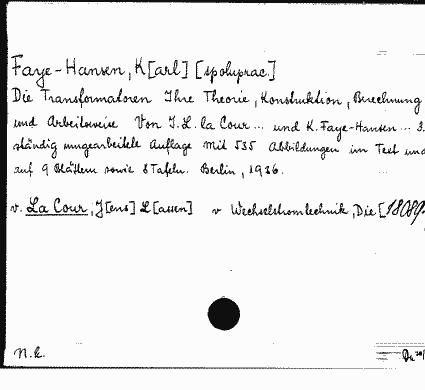 Faye-Hansen, K[arl] [spoluprac.]
Die Transformatoren Ihre Theorie, Konstruktion, Berechnung
und Arbeitsweise Von J.L. la Cour ... und K. Faye-Hansen ... 3.
ständig umgearbeitete Auflage Mit 535 Abbildungen im Text und
auf 9 Blättern sowie 8 Tafeln. Berlin, 1936.
v. La Cour, J[ens] L[assen] v Wechselstromtechnik, Die [18089
N.k.